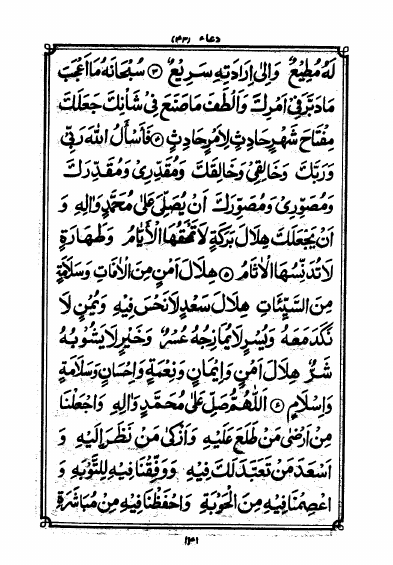 دعاء (۴۳)
لَهُ مُطِيعٌ وَاِلٰى اِرَادَتِهٖ سَرِيعٌ ۞۳ سُبْحَانَهُ مَا اَعْجَبَ
مَا دَبَّرَ فِىْ اَمْرِكَ وَاَلْطَفَ مَا صَنَعَ فِىْ شَاْنِكَ جَعَلَكَ
مِفْتَاحَ شَهْرٍ حَادِثٍ لِاَمْرٍ حَادِثٍ ۞۴ فَاَسْاَلُ اللهَ رَبِّىْ
وَرَبَّكَ وَخَالِقِىْ وَخَالِقَكَ وَمُقَدِّرِىْ وَمُقَدِّرَكَ
وَمُصَوِّرِىْ وَمُصَوِّرَكَ اَنْ يُصَلِّىَ عَلٰى مُحَمَّدٍ وَاٰلِهٖ وَ
اَنْ يَجْعَلَكَ هِلَالَ بَرَكَةٍ لَا تَمْحَقُهَا الْاَيَّامُ وَطَهَارَةٍ
لَا تُدَنِّسُهَا الْاٰثَامُ ۞۵ هِلَالَ اَمْنٍ مِنَ الْاٰفَاتِ وَسَلَامَةٍ
مِنَ السَّيِّئَاتِ هِلَالَ سَعْدٍ لَا نَحْسَ فِيهِ وَيُمْنٍ لَا
نَكَدَ مَعَهُ وَيُسْرٍ لَا يُمَازِجُهُ عُسْرٌ وَخَيْرٍ لَا يَشُوْبُهُ
شَرٌّ هِلَالَ اَمْنٍ وَاِيْمَانٍ وَنِعْمَةٍ وَاِحْسَانٍ وَسَلَامَةٍ
وَاِسْلَامٍ ۞۶ اَللّٰهُمَّ صَلِّ عَلٰى مُحَمَّدٍ وَاٰلِهٖ وَاجْعَلْنَا
مِنْ اَرْضٰى مَنْ طَلَعَ عَلَيْهِ وَاَزْكٰى مَنْ نَظَرَ اِلَيْهِ وَ
اَسْعَدَ مَنْ تَعَبَّدَ لَكَ فِيهِ وَوَفِّقْنَا فِيهِ لِلتَّوْبَةِ وَ
اعْصِمْنَا فِيهِ مِنَ الْحَوْبَةِ وَاحْفَظْنَا فِيهِ مِنْ مُبَاشَرَةِ
۱۴۱